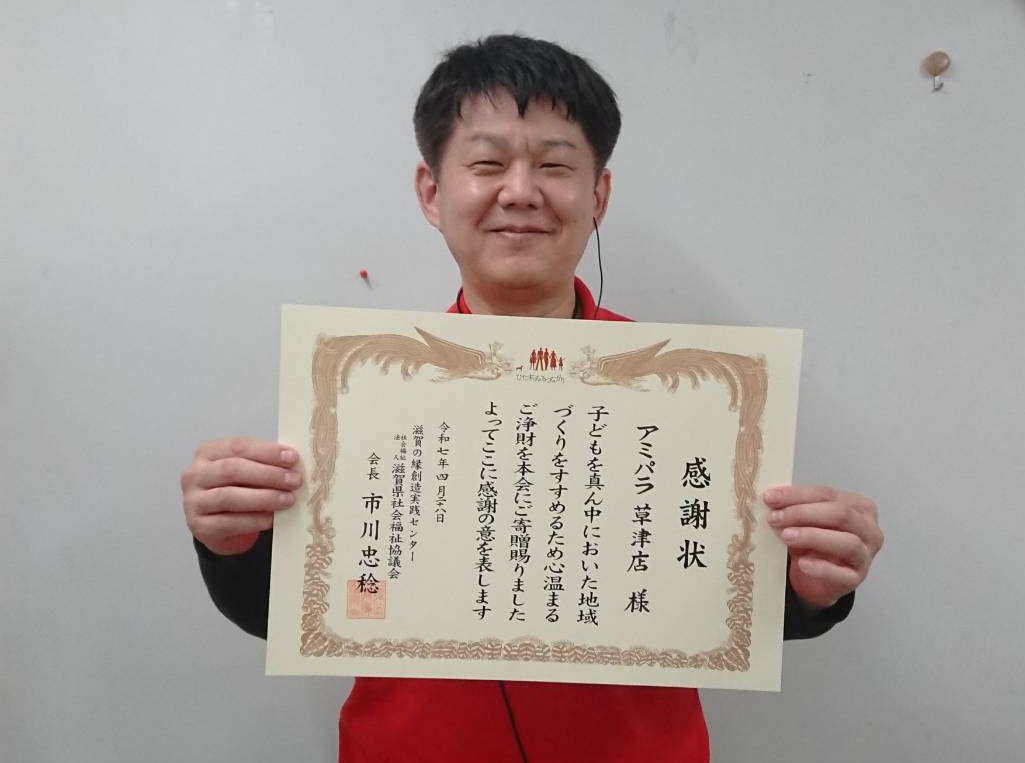 ひたすらなるつながり
感謝状
アミパラ 草津店 様
子どもを真ん中においた地域
づくりをすすめるため心温まる
ご浄財を本会にご寄贈賜りました
よってここに感謝の意を表します
令和七年四月二十八日
滋賀の縁創造実践センター
社会福祉法人 滋賀県社会福祉協議会
会長 市川忠稔